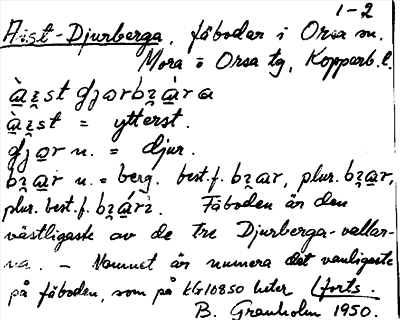 1-2
Aist-Djurberga, fäbodar i Orsa sn.
Mora o Orsa tg, Kopparb.l.
à̱i̯st gjarbi̯à̱ra
à̱i̯st = ytterst.
gjar n. = djur.
bi̯a̱r n. = berg. best.f. bi̯ar, plur. bi̯a̱r,
plur. best.f. bi̯á̱ri. Fäboden är den
västligaste av de tre Djurberga-vallar-
na. - Namnet är numera det vanligaste
på fäboden, som på KG10850 heter (forts.
B. Granholm 1950.